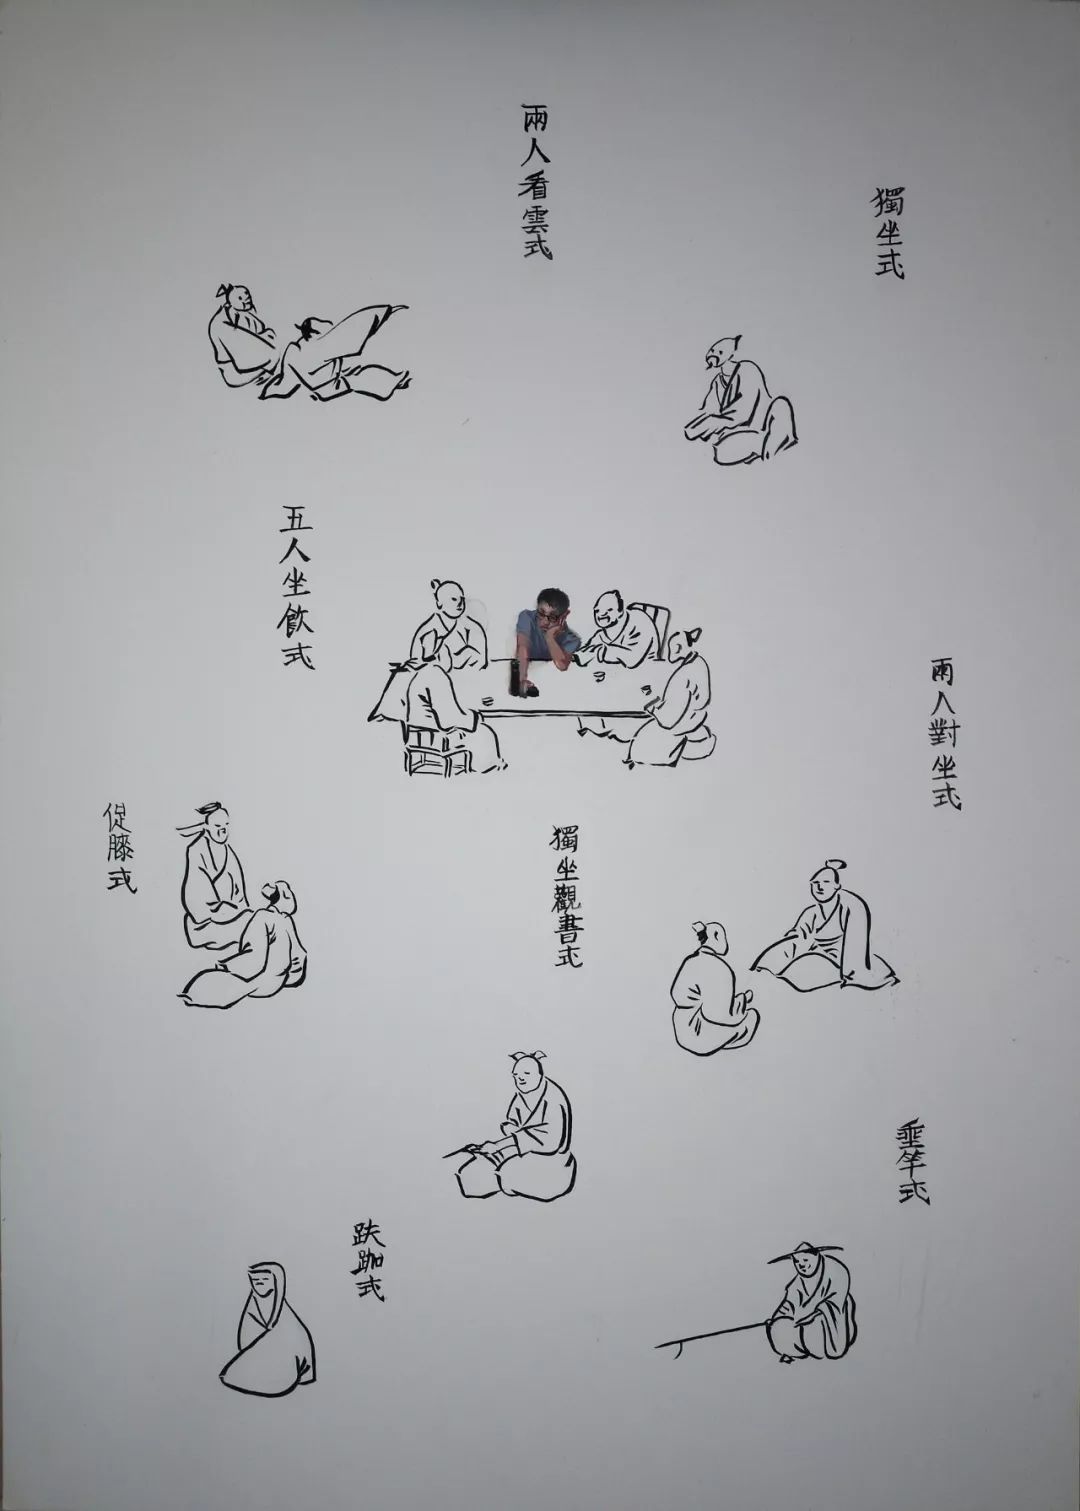 獨坐式
兩人看雲式
五人坐飲式
兩人對坐式
獨坐觀書式
促膝式
垂竿式
趺跏式